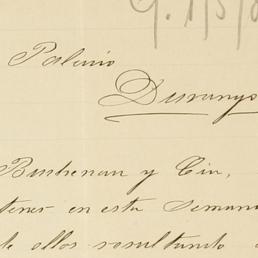 Palacio
Durango
Buchenau y Cia,
tener en esta semana
de ellos resultando